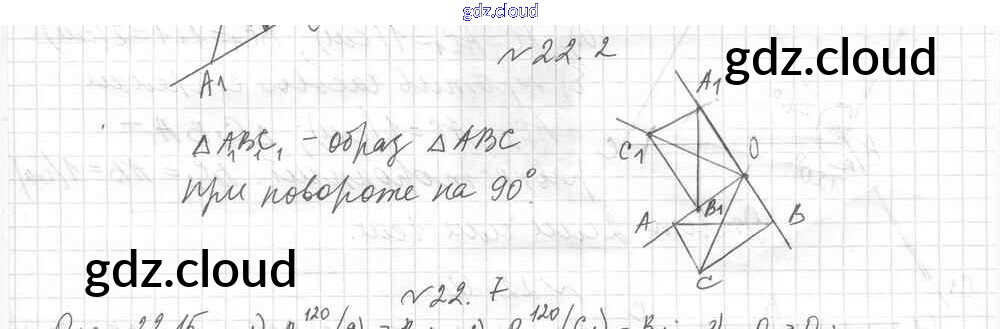 gdz.cloud
№22.2
gdz.cloud
A1
A1
C1
O
△A₁B₁C₁ - образ △ABC
при повороте на 90°.
A
B1
B
C
gdz.cloud
№22.7